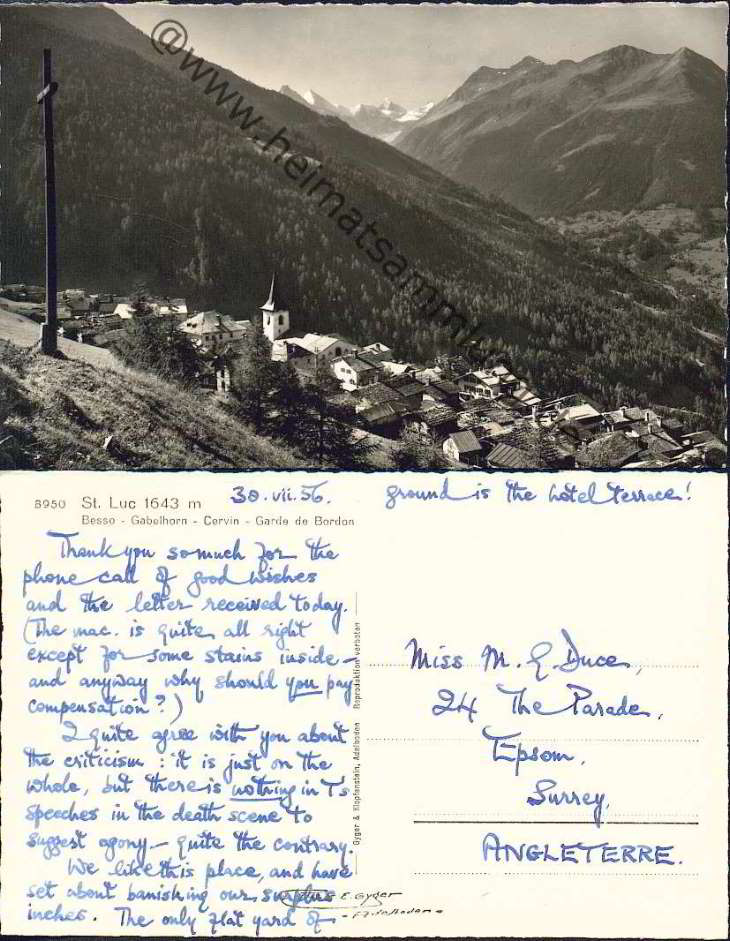 @www.heimatsamml
8950 St. Luc 1643 m
Besso - Gabelhorn - Cervin - Garde de Bordon
30.vii.56.
Thank you so much for the
phone call of good wishes
and the letter received today.
(The mac. is quite all right
except for some stains inside –
and anyway why should you pay
compensation?)
I quite agree with you about
the criticism: it is just on the
whole, but there is nothing in T's
speeches in the death scene to
suggest agony – quite the contrary.
We like this place, and have
set about banishing our surplus
inches. The only flat yard of
ground is the hotel terrace!
Gyger & Klopfenstein, Adelboden Reproduktion verboten
E. Gyger
- Adelboden -
Miss M. E. Duce,
24 The Parade,
Epsom,
Surrey,
ANGLETERRE.